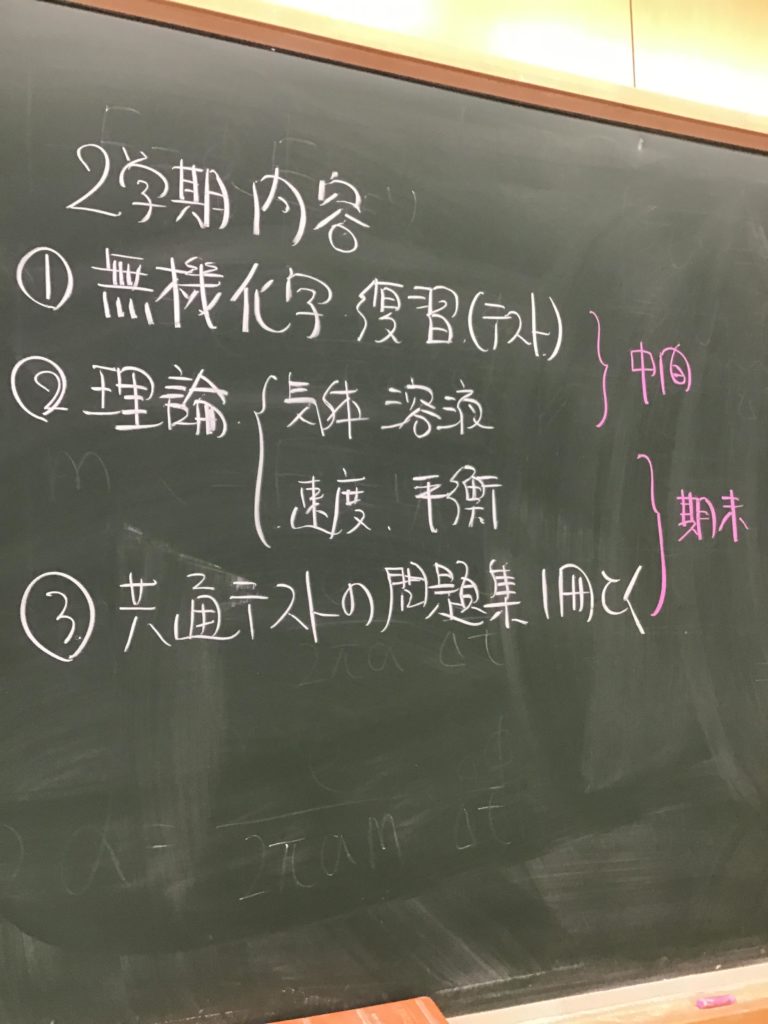 2学期内容
① 無機化学 復習(テスト) 中間
② 理論 { 気体 溶液
速度、平衡 期末
③ 共通テストの問題集1冊とく
2πa Δt
a = 2πam Δt